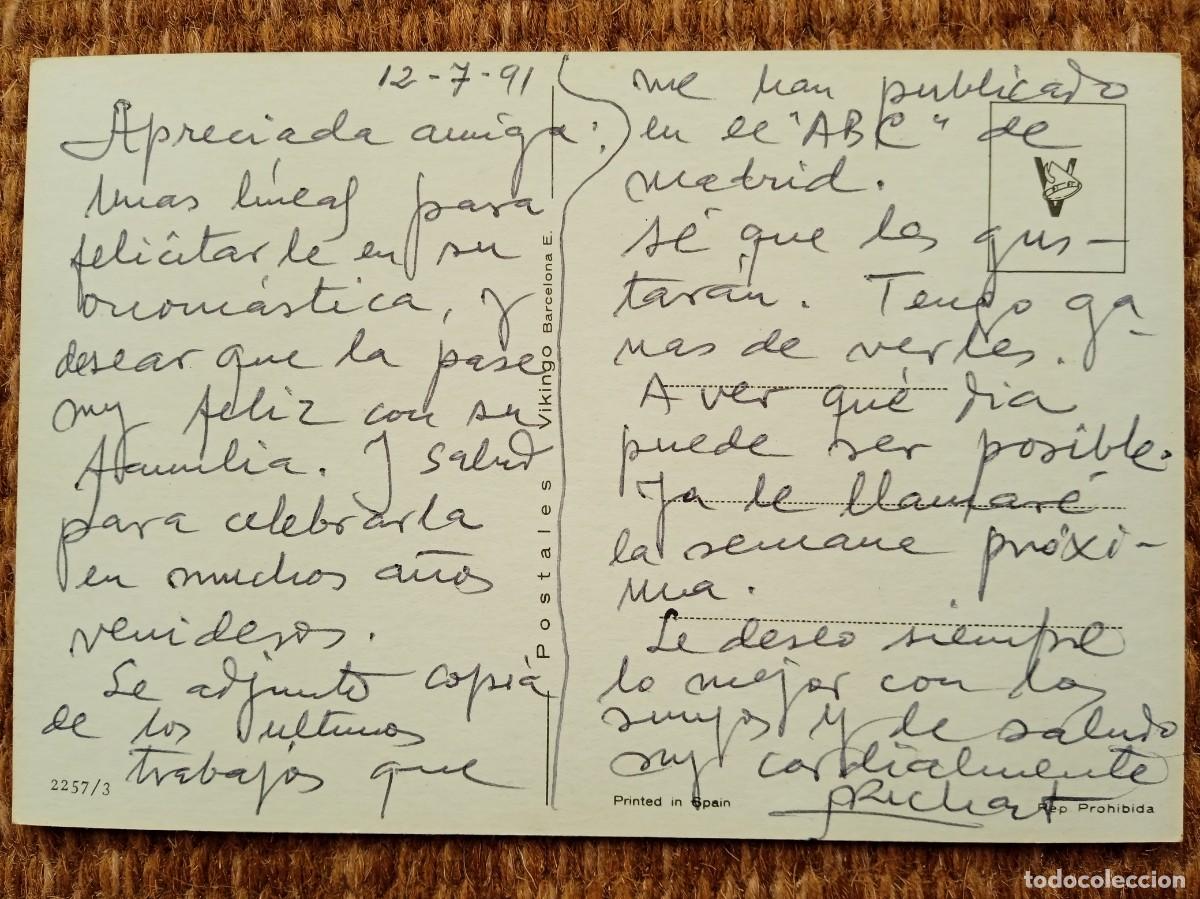 12-7-91
Apreciada amiga:
Unas líneas para
felicitarle en su
onomástica, y
desear que la pase
muy feliz con su
familia. Y salud
para celebrarla
en muchos años
venideros.
Le adjunto copia
de los últimos
trabajos que
2257/3
Postales Vikingo Barcelona E.
me han publicado
en el "ABC" de
Madrid.
Sé que les gus-
tarán. Tengo ga-
nas de verles.
A ver qué día
puede ser posible.
Ya le llamaré
la semana próxi-
ma.
Le deseo siempre
lo mejor con los
suyos y le saludo
muy cordialmente
Richart
Printed in Spain
Rep Prohibida
V
todocoleccion